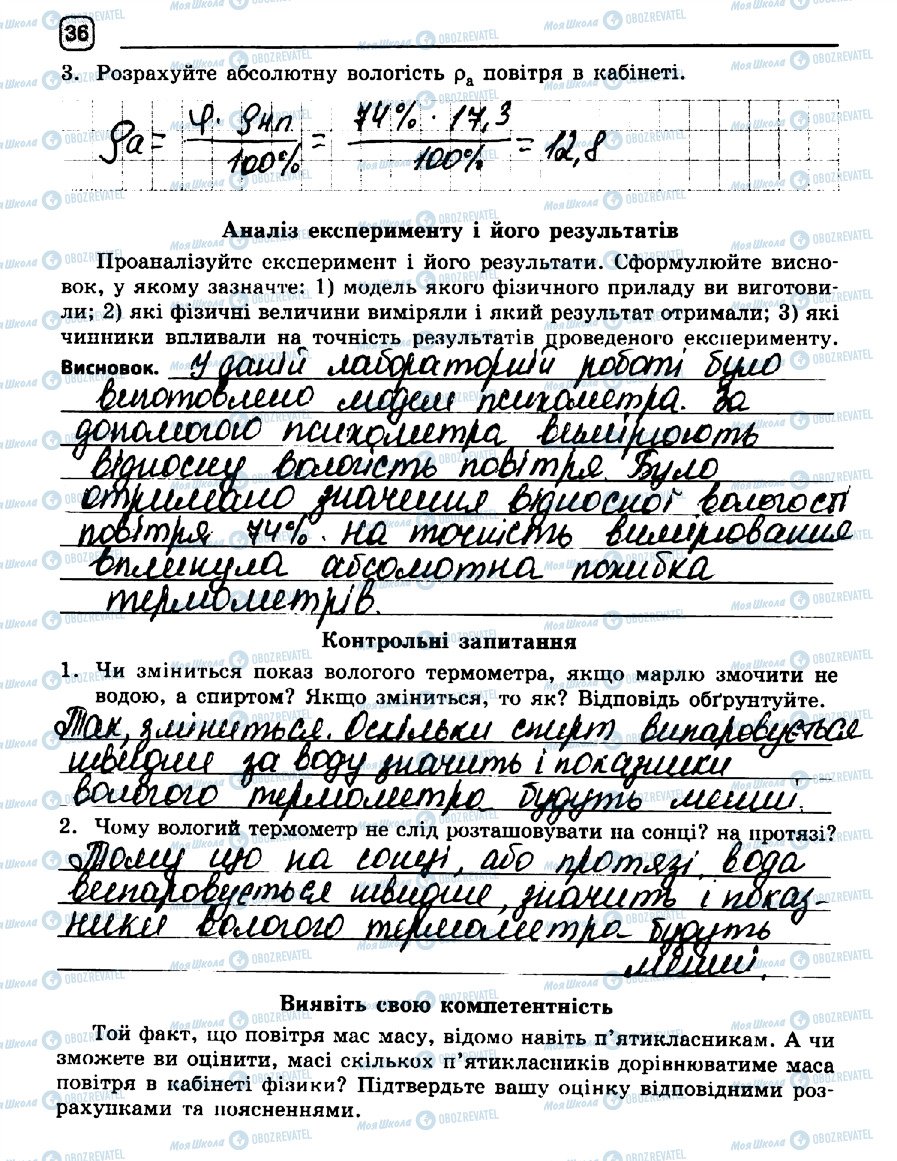 36
3. Розрахуйте абсолютну вологість ρа повітря в кабінеті.
ρа = φ · ρнп / 100% = 74% · 17,3 / 100% = 12,8
Аналіз експерименту і його результатів
Проаналізуйте експеримент і його результати. Сформулюйте висно-
вок, у якому зазначте: 1) модель якого фізичного приладу ви виготови-
ли; 2) які фізичні величини виміряли і який результат отримали; 3) які
чинники впливали на точність результатів проведеного експерименту.
Висновок. У даній лабораторній роботі було
виготовлено модель психометра. За
допомогою психометра вимірюють
відносну вологість повітря. Було
отримано значення відносної вологості
повітря 74%. На точність вимірювання
вплинула абсолютна похибка
термометрів.
Контрольні запитання
1. Чи зміниться показ вологого термометра, якщо марлю змочити не
водою, а спиртом? Якщо зміниться, то як? Відповідь обґрунтуйте.
Так, зміниться. Оскільки спирт випаровується
швидше за воду значить і показники
вологого термометра будуть менші.
2. Чому вологий термометр не слід розташовувати на сонці? на протязі?
Тому що на сонці, або протязі, вода
випаровується швидше, значить і показ-
ники вологого термометра будуть
менші.
Виявіть свою компетентність
Той факт, що повітря має масу, відомо навіть п’ятикласникам. А чи
зможете ви оцінити, масі скількох п’ятикласників дорівнюватиме маса
повітря в кабінеті фізики? Підтвердьте вашу оцінку відповідними роз-
рахунками та поясненнями.
Моя Школа OBOZREVATEL